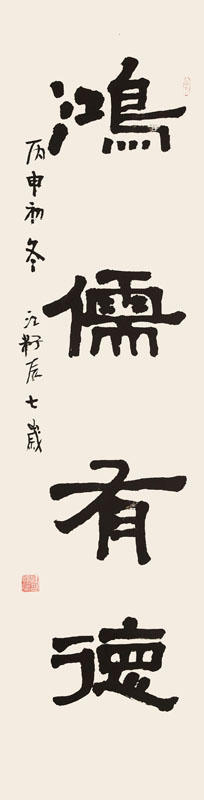 鴻儒有德
丙申初冬 江籽辰七歲